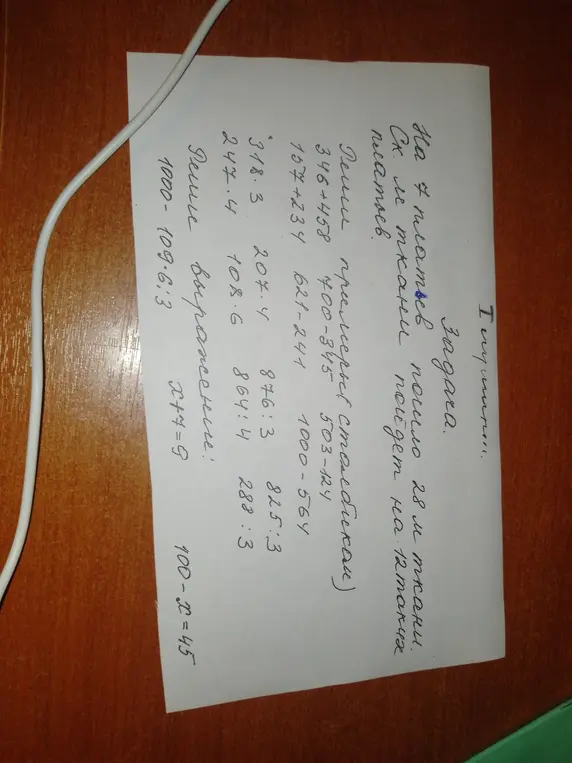 Задача.
На 7 платьев пошло 28 м ткани.
Ск м ткани пойдет на 12 таких
платьев.
Реши примеры (столбиком)
346+458 700-345 503-124
167+234 621-241 1000-564
318·3 207·4 876:3 825:3
247·4 108·6 864:4 288:3
Реши выражение:
1000-109·6:3 х+7=9 100-х=45